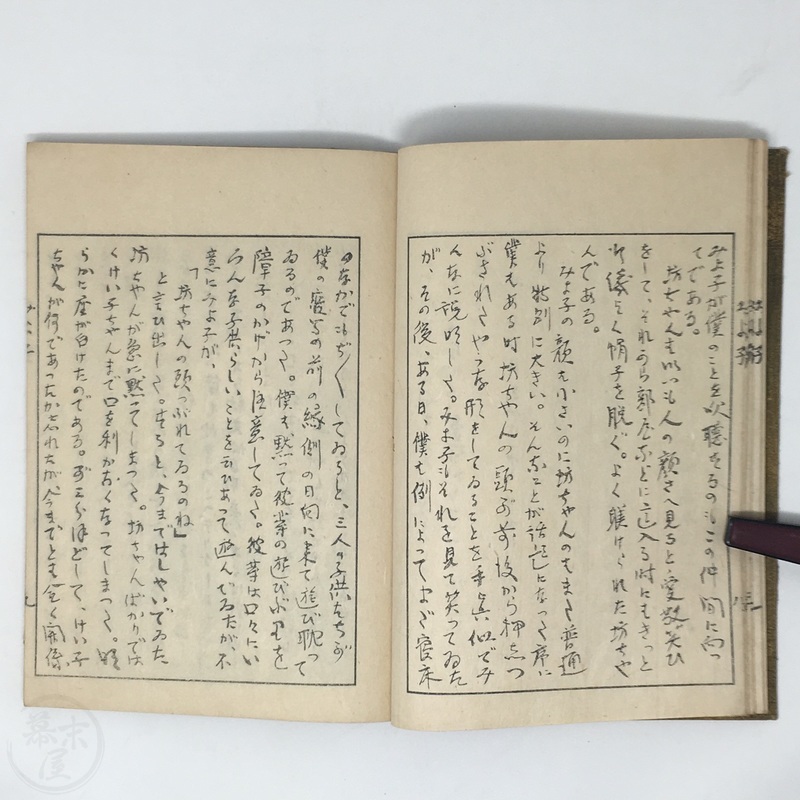 みよ子が僕のことを吹聴するのもこの仲間に向つ
てである。
坊ちやんも以いつも人の顔さへ見ると、愛敬笑ひ
をして、それから部屋などに這入る時にはきつと
叮嚀に帽子を脱ぐ。よく躾けられた坊ちや
んである。
みよ子の顔も小さいのに坊ちやんのもまた普通
より特別に大きい。そんなことが話にになつた序に
僕もある時坊ちやんの頭が前後から押しつ
ぶされたやうな形をしてゐることを手真似でみ
んなに説明した。みよ子もそれを見て笑つてゐた
が、その後、ある日、僕も例によつてまだ寝床
のなかでもぢ〳〵してゐると、三人の子供たちが
僕の寝室の前の縁側の日向に来て遊び耽つて
ゐるのであつた。僕も黙つて彼等の遊びぶりを
障子のかげから注意してゐた。彼等は口々にい
ろんな子供らしいことを云ひあつて遊んでゐたが、不
意にみよ子が、
「坊ちやんの頭つぶれてゐるのね」
と言ひ出した。すると、今まではしやいでゐた
坊ちやんが急に黙つてしまつた。坊ちやんばかりでは
くけい子ちやんまで口を利かなくなつてしまつた。明
らかに座が白けたのである。が三分ほどして、けい子
ちやんが何であつたか忘れたが、今までとも全く関係